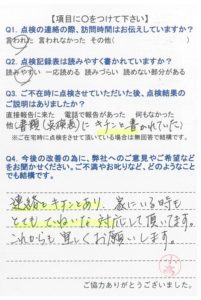 【項目に○をつけて下さい】
Q1. 点検の連絡の際、訪問時間はお伝えしていますか?
言われた 言われなかった その他( )
Q2. 点検記録表は読みやすく書かれていますか?
読みやすい 一応読める 読みづらい 読めない部分がある
Q3. ご不在時に点検させていただいた後、点検結果の
ご説明はありましたか?
直接報告に来た 電話で報告があった 何もなかった
他( 書類(点検表)に キチンと書かれていた )
※ご在宅時に点検をさせて頂いている場合は無回答で結構です。
Q4. 今後の改善の為に、弊社へのご意見やご希望などを
お聞かせください。ご不満やお叱りなど、どのようなこと
でも結構です。
連絡もキチンとあり、家にいる時も
とても、ていねいな対応して頂いてます。
これからも宜しくお願いします。
ご協力ありがとうございました。